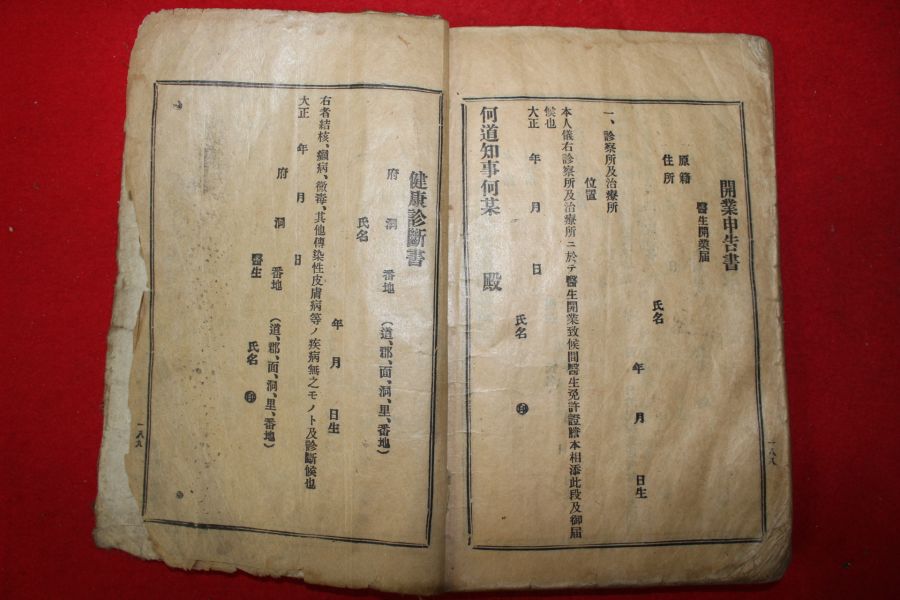 開業申告書
醫生開業届
原籍
住所
氏名
年 月 日生
一、診察所及治療所
位置
本人儀右診察所及治療所ニ於テ醫生開業致候間醫生免許證謄本相添此段及御届
候也
大正 年 月 日
氏名 ㊞
何道知事何某 殿
一八八
健康診斷書
府 洞 番地 (道、郡、面、洞、里、番地)
氏名
年 月 日生
右者結核、癩病、黴毒、其他傳染性皮膚病等ノ疾病無之モノト及診斷候也
大正 年 月 日
府 洞 番地 (道、郡、面、洞、里、番地)
醫生 氏名 ㊞
一八九